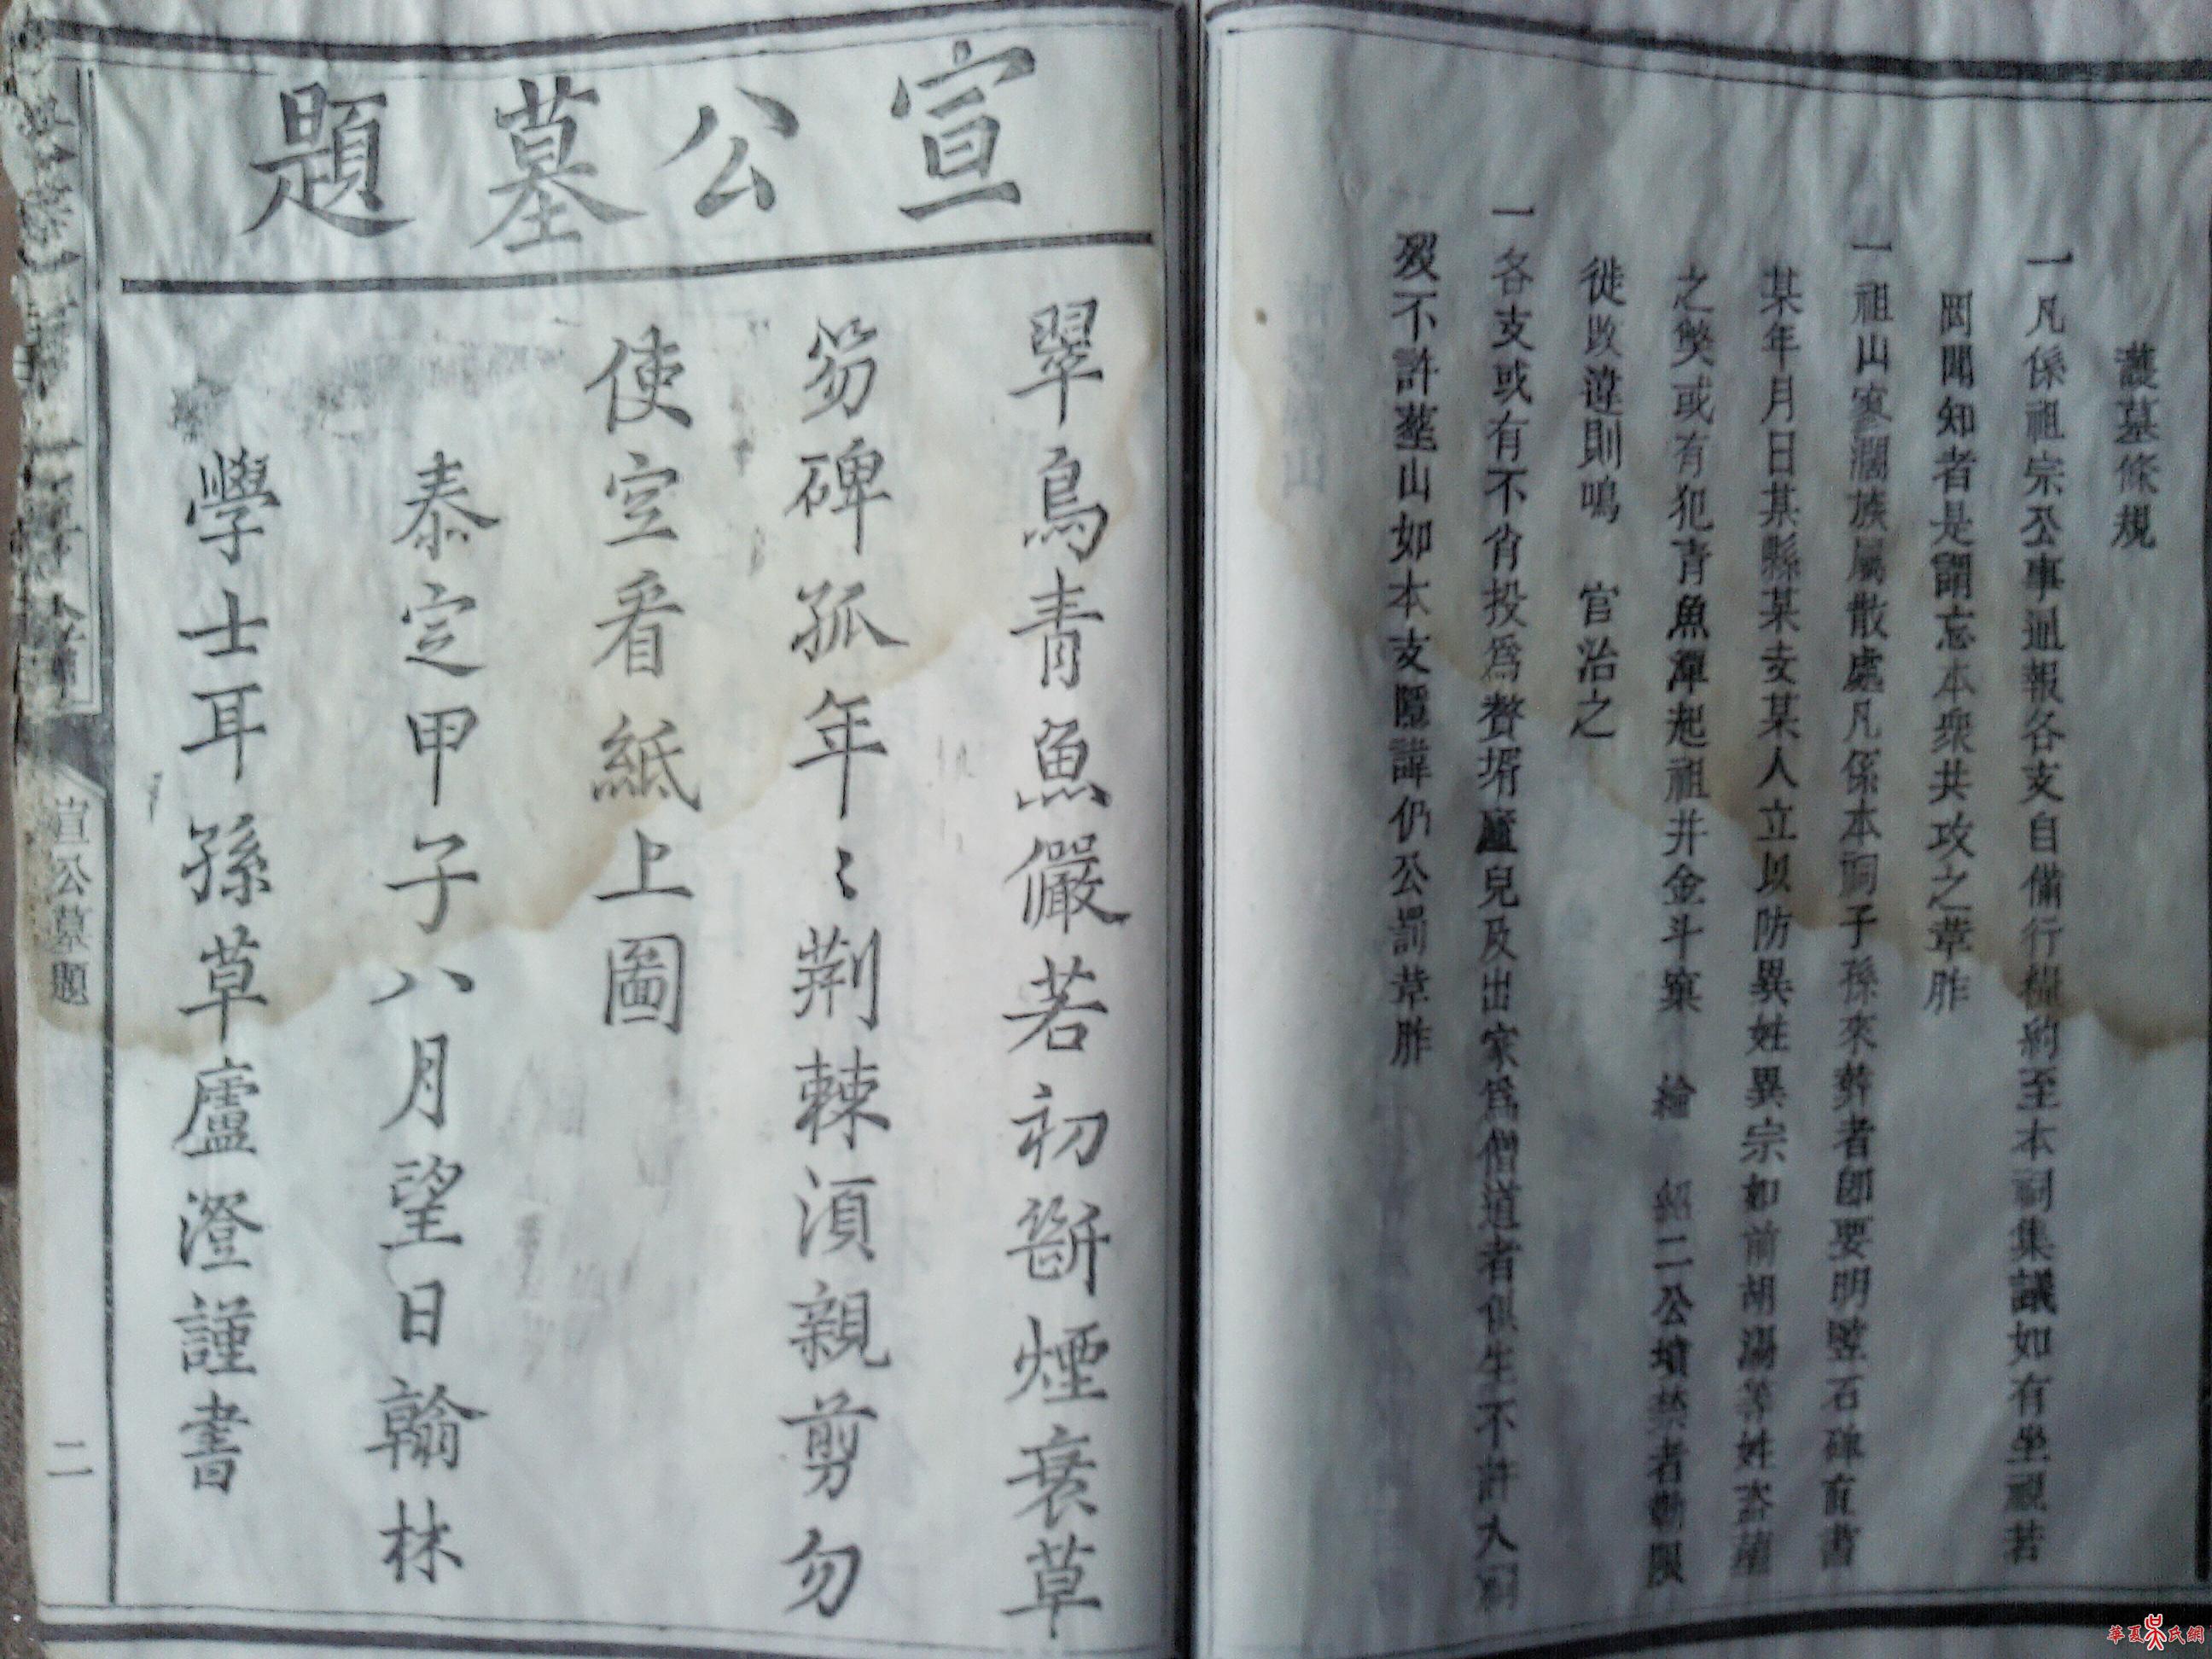 護墓條規
一凡係祖宗公事通報各支自備行糧約至本祠集議如有坐視若
罔聞知者是謂忘本衆共攻之革胙
一祖山寥濶族屬散處凡係本祠子孫來葬者即要明竪石碑直書
某年月日某縣某支某人立以防異姓異宗如前胡湯等姓盗葬
之獘或有犯青魚潭起祖井金斗窠 繪 紹二公墳禁者勒限
徙改違則鳴 官治之
一各支或有不肖投爲贅壻廝兒及出家爲僧道者俱生不許入祠
殁不許塟山如本支隱諱仍公罰革胙
宣公墓題
翠鳥青魚儼若初斷煙衰草
笏碑孤年〻荆棘湏親剪勿
使空看紙上圖
泰定甲子八月望日翰林
學士耳孫草廬澄謹書
宣公墓題
二
華夏吳氏網